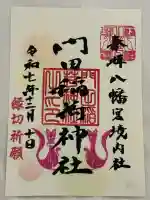 奉拝八幡宮境内社
門田稲荷神社
令和七年十二月十日
縁切祈願